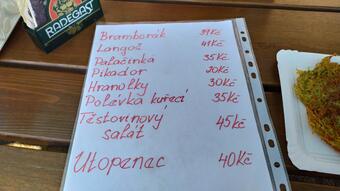 RADEGAST
Bramborák 39Kč
Langoš 41Kč
Palačinka 35Kč
Pikador 20Kč
Hranolky 30Kč
Polévka kuřecí 35Kč
Těstovinový
salát 45Kč
Utopenec 40Kč